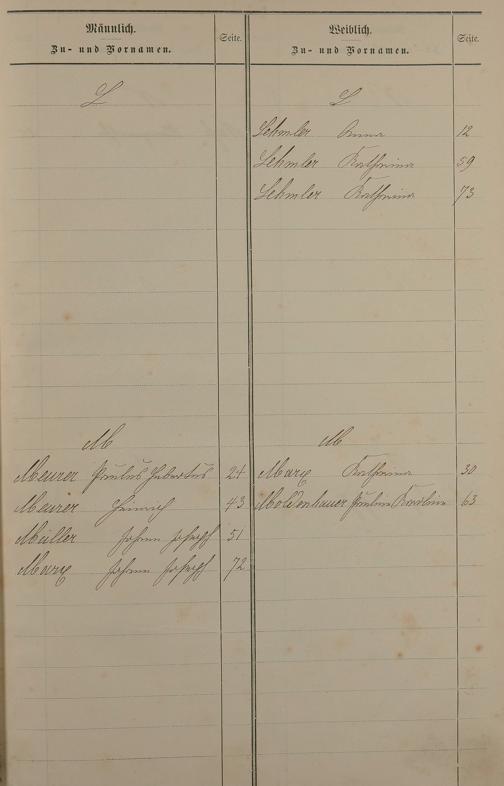 Männlich.
Zu- und Vornamen.
Seite.
Weiblich.
Zu- und Vornamen.
Seite.
L
L
Lehmler Anna 12
Lehmler Katharina 59
Lehmler Katharina 73
M
M
Meurer Paulus Hubertus 24
Marx Katharina 30
Meurer Heinrich 43
Moldenhauer Paulina Karolina 63
Müller Johann Joseph 51
Marx Johann Joseph 72